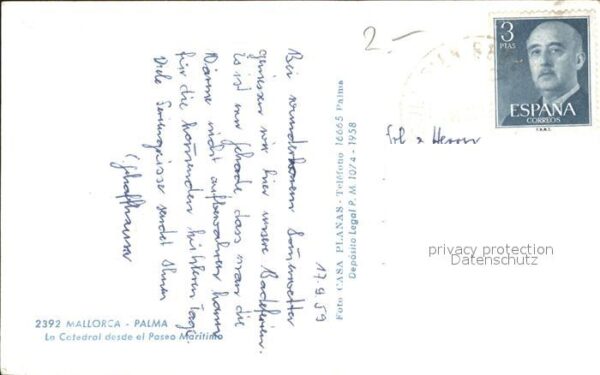 17.9.59
Bei wunderbarem Sonnenwetter
geniessen wir hier unsere Badeferien.
Es ist nur schade, dass man die
Wärme nicht aufbewahren kann
für die kommenden kühleren Tage.
Viele Feriengrüsse sendet Ihnen
Schaffhauser
Foto CASA PLANAS - Teléfono 16665 Palma
Depósito Legal P. M. 10/4 - 1958
2392 MALLORCA - PALMA
La Catedral desde el Paseo Marítimo
2.-
3
PTAS
ESPAÑA
CORREOS
F.N.M.T.
Herrn
privacy protection
Datenschutz